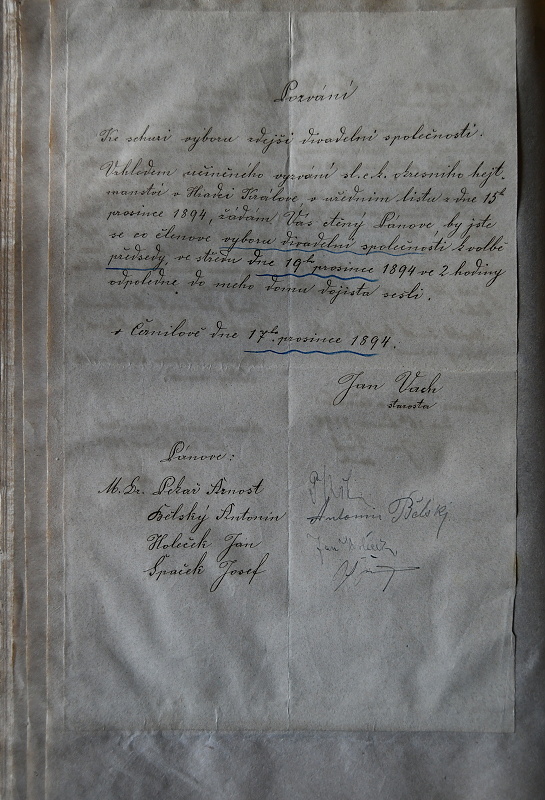 Pozvání
Ke schuzi výboru zdejší divadelní společnosti.
Vzhledem učiněného vyzvání sl. c. k. okresního hejt.
manství v Hradci Králové, v uředním listu z dne 15ho
prosince 1894, žádám Vás ctěný Pánové, by jste
se co členove výboru divadelní společnosti k volbě
předsedy, ve středu dne 19ho prosince 1894 ve 2 hodiny
odpoledne do meho domu dojista sešli.
v Černilově dne 17ho prosince 1894.
Jan Vach
starosta
Pánove:
M. Dr. Pekař Arnost
Bělský Antonin
Holeček Jan
Špaček Josef
Antonin Bělský
Jan